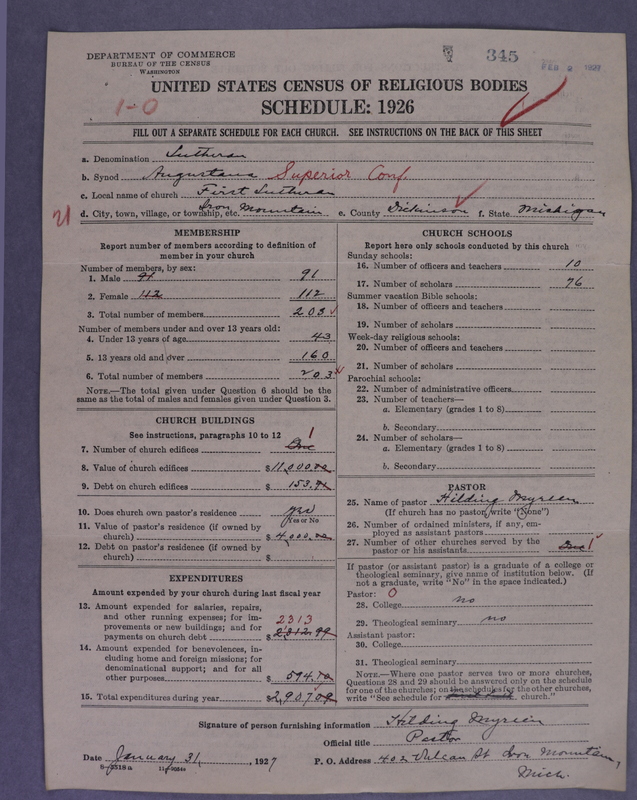 DEPARTMENT OF COMMERCE
BUREAU OF THE CENSUS
WASHINGTON
345
FEB 2 1927
UNITED STATES CENSUS OF RELIGIOUS BODIES
1-0
SCHEDULE: 1926
FILL OUT A SEPARATE SCHEDULE FOR EACH CHURCH. SEE INSTRUCTIONS ON THE BACK OF THIS SHEET
a. Denomination Lutheran
b. Synod Augustana Superior Conf
c. Local name of church First Lutheran
21 d. City, town, village, or township, etc. Iron Mountain e. County Dickinson f. State Michigan
MEMBERSHIP
Report number of members according to definition of
member in your church
Number of members, by sex:
1. Male 91 91
2. Female 112 112
3. Total number of members 203
Number of members under and over 13 years old:
4. Under 13 years of age 43
5. 13 years old and over 160
6. Total number of members 203
NOTE.—The total given under Question 6 should be
same as the total of males and females given under Question 3.
CHURCH BUILDINGS
See instructions, paragraphs 10 to 12
7. Number of church edifices One 1
8. Value of church edifices $11,000.00
9. Debt on church edifices $153.91
10. Does church own pastor's residence yes
Yes or No
11. Value of pastor's residence (if owned by
church) $4,000.00
12. Debt on pastor's residence (if owned by
church) $
EXPENDITURES
Amount expended by your church during last fiscal year
13. Amount expended for salaries, repairs,
and other running expenses; for im-
provements or new buildings; and for
payments on church debt 2313 $2312.99
14. Amount expended for benevolences, in-
cluding home and foreign missions; for
denominational support; and for all
other purposes $594.10
15. Total expenditures during year $2,907.09
CHURCH SCHOOLS
Report here only schools conducted by this church
Sunday schools:
16. Number of officers and teachers 10
17. Number of scholars 76
Summer vacation Bible schools:
18. Number of officers and teachers
19. Number of scholars
Week-day religious schools:
20. Number of officers and teachers
21. Number of scholars
Parochial schools:
22. Number of administrative officers
23. Number of teachers—
a. Elementary (grades 1 to 8)
b. Secondary
24. Number of scholars—
a. Elementary (grades 1 to 8)
b. Secondary
PASTOR
25. Name of pastor Hilding Myreen
(If church has no pastor, write "None")
26. Number of ordained ministers, if any, em-
ployed as assistant pastors
27. Number of other churches served by the
pastor or his assistants One 1
If pastor (or assistant pastor) is a graduate of a college or
theological seminary, give name of institution below. (If
not a graduate, write "No" in the space indicated.)
Pastor: 0
28. College no
29. Theological seminary no
Assistant pastor:
30. College
31. Theological seminary
NOTE.—Where one pastor serves two or more churches,
Questions 28 and 29 should be answered only on the schedule
for one of the churches; on the schedules for the other churches,
write "See schedule for church."
Signature of person furnishing information Hilding Myreen
Official title Pastor
Date January 31, 1927 P. O. Address 402 Vulcan St Iron Mountain,
Mich.